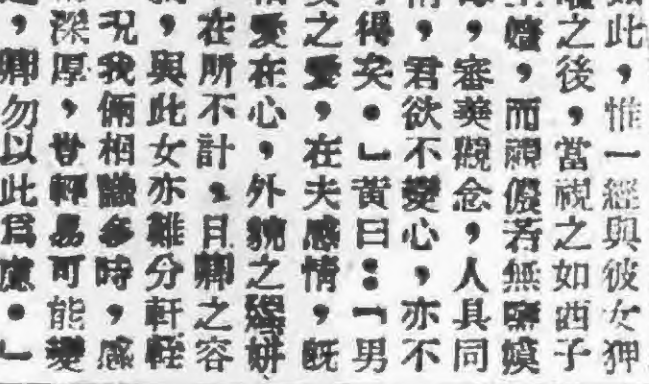 此，惟一經與彼女狎
之後，當視之如西子
嬙，而視儂若無鹽嫫
，審美觀念，人具同
，君欲不變心，亦不
得矣。」黃曰：「男
之愛，在夫感情，旣
愛在心，外貌之媸妍
，在所不計，且卿之容
，與此女亦難分軒輊
况我倆相識多時，感
深厚，豈輕易可能變
，卿勿以此爲慮。」